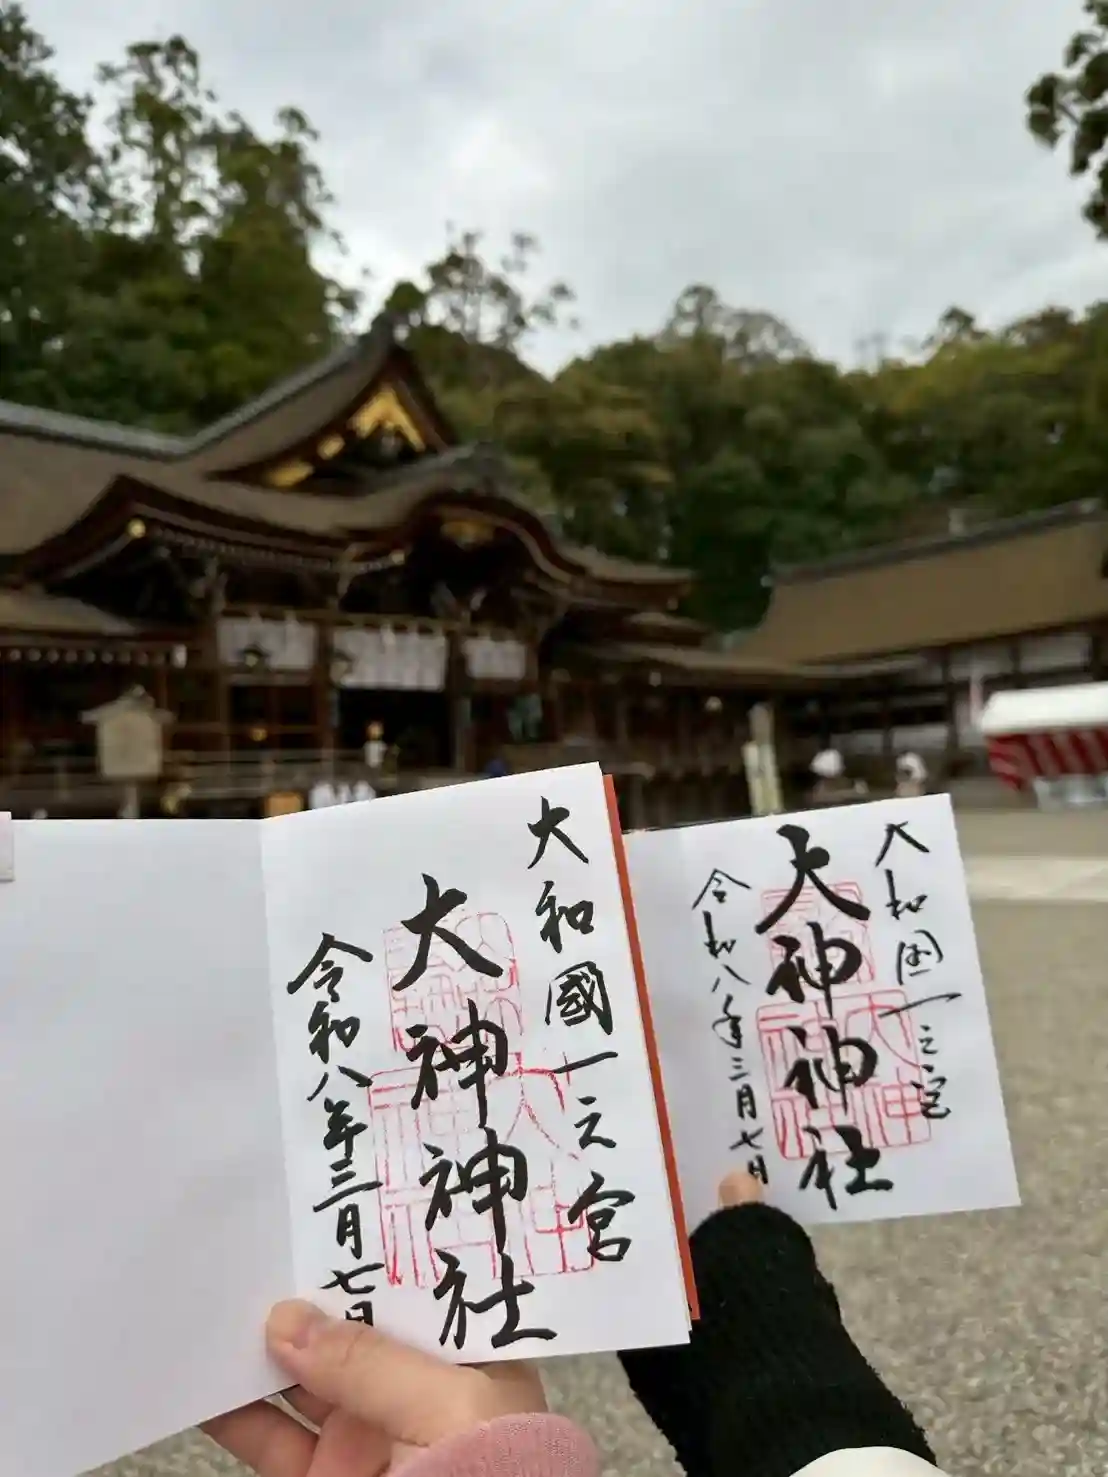 大和國一之宮
大神神社
令和八年三月七日
大和国一之宮
大神神社
令和八年三月七日